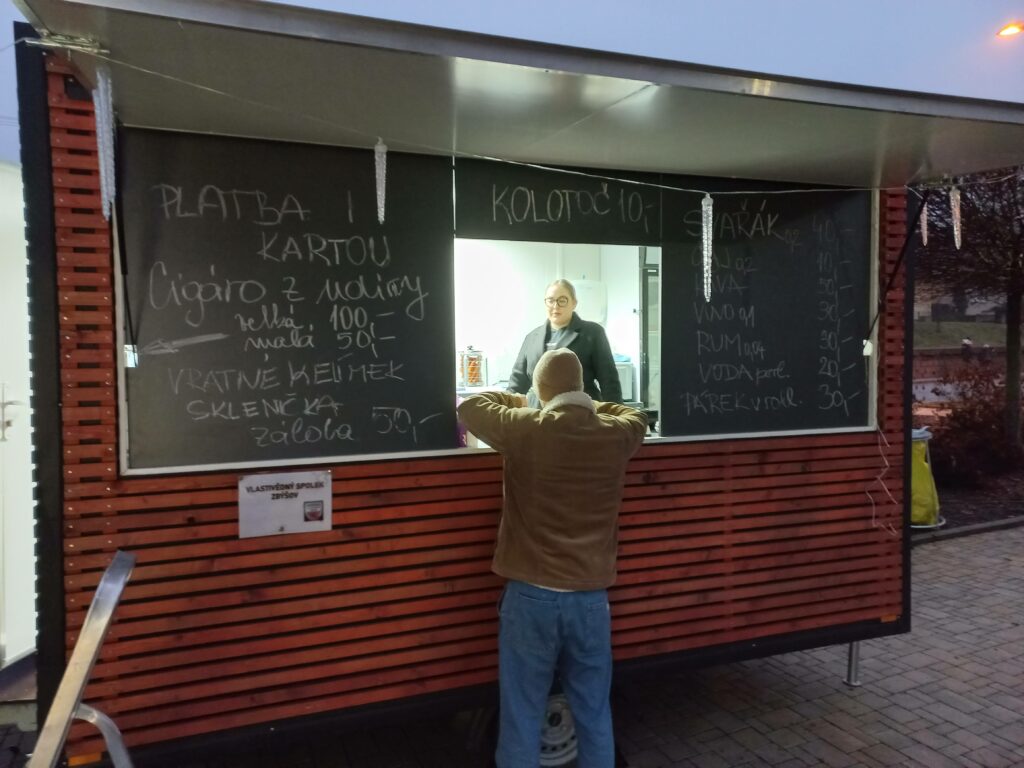 PLATBA I
KARTOU
Cigáro z udírny
velká 100,-
malá 50,-
VRATNÉ KELÍMEK
SKLENIČKA
záloha 50,-
KOLOTOČ 10,-
SVAŘÁK 0,2 40,-
ČAJ 0,2 10,-
KÁVA 50,-
VÍNO 0,1 30,-
RUM 0,04 30,-
VODA perl. 20,-
PÁREK v rohl. 30,-
VLASTIVĚDNÝ SPOLEK
ZBÝŠOV